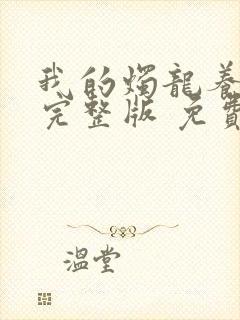 我的燭龍養
完整版 免費
溫堂